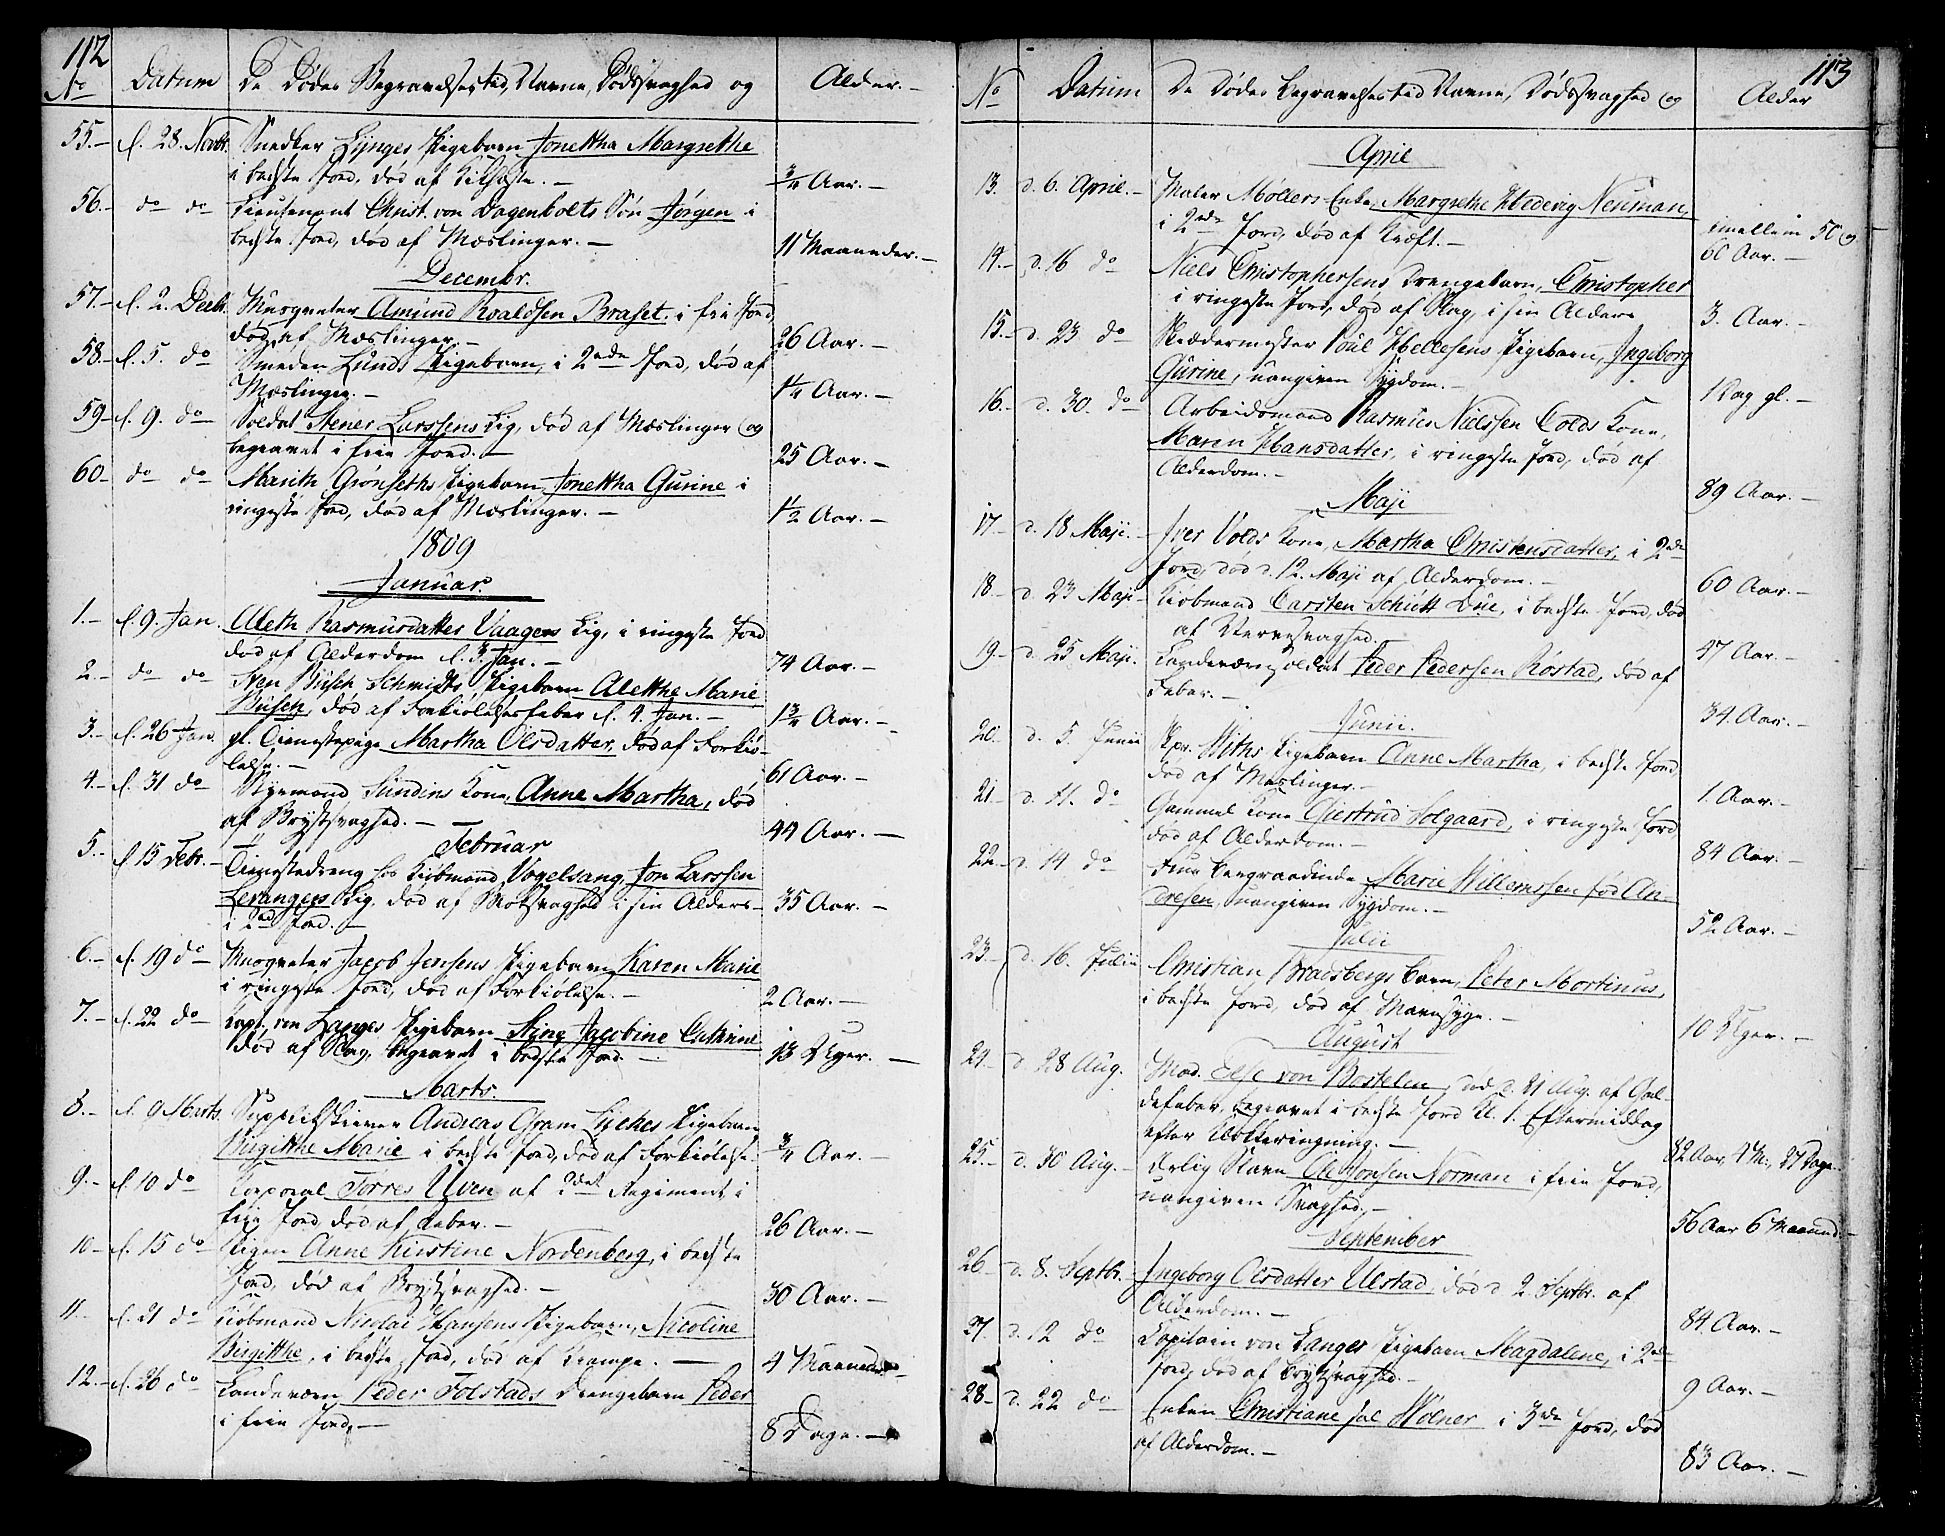 112
No Datum De Dødes Begravelsested, Navne, Dødssvaghed og Alder.-
55.- d. 28. Novbr. Snedker Lynges Pigebarn Jonettha Margrethe
i beste Jord, død af Kikhoste.- 3/4 Aar.-
56.- do do Lieutenant Christ. von Dagenbolts Søn Jørgen i
beste Jord, død af Mæslinger.- 11 Maaneder.-
Decembr.
57.- d. 2. Decbr. Musqueter Amund Roaldsen Braset i frie Jord,
død af Mæslinger.- 26 Aar.-
58.- d. 5. do Smeden Lunds Pigebarn, i 2den Jord, død af
Mæslinger.- 1/4 Aar.-
59.- d. 9. do Soldat Stener Larssens Lig, død af Mæslinger og
begravet i frie Jord.- 25 Aar.-
60.- do do Marith Grønseths Pigebarn Jonettha Gurine i
ringeste Jord, død af Mæslinger.- 1/2 Aar.-
1809
Januar.
1.- d. 9. Jan. Aleth Rasmusdatter Vaagens Lig, i ringeste Jord
død af Alderdom d. 3 Jan.- 74 Aar.-
2.- do do Busch Schmidts Pigebarn Alethe Marie
Busch, død af Forkiølelsesfeber d. 4. Jan.- 1 3/4 Aar.-
3.- d. 26 Jan. gl. Tienestepige Martha Olsdatter, død af Forkiø-
lelse.- 61 Aar.-
4.- d. 31 do Byemand Sundins Kone, Anne Martha, død
af Brystsvaghed.- 44 Aar.-
Februar
5.- d. 15 Febr.- Tienestedreng hos Kiøbmand Vogelsang, Jon Larssen
Levangers Lig, død af Svaghed i sin Alders-
i 2den Jord.- 35 Aar.-
6.- d. 19 do Musqueter Jacob Jensens Pigebarn Karen Marie
i ringeste Jord, død af Forkiølelse.- 2 Aar.-
7.- d. 22 do Capt. von Langes Pigebarn Stine Jacobine Cathrine
død af Slag, begravet i beste Jord.- 13 Uger.-
Marts.
8.- d. 9 Marts. Andreas Gram Pigebarn
Birgitthe Marie i beste Jord, død af Forkiølelse. 3/4 Aar.-
9.- d. 10 do Corporal Torres Uven af 2det Regiment i
frie Jord, død af Feber.- 26 Aar.-
10.- d. 15 do Pigen Anne Kirstine Nordenberg, i beste
Jord, død af Brystsvaghed.- 30 Aar.-
11.- d. 21 do Kiøbmand Nicolai Hansens Pigebarn, Nicoline
Birgitthe, i beste Jord, død af Krampe.- 4 Maaneder.-
12.- d. 26 do Landeværn Peder Tolstads Drengebarn Peder
i frie Jord.- 8 Dage.-
113
No Datum De Dødes Begravelsested Navne, Dødssvaghed og Alder
April
13. d. 6. April.- Maler Møllers Enke, Margrethe Hedevig Neuman,
i 2den Jord, død af Kræft.- imellem 50 og
60 Aar.-
14.- d. 16 do Niels Christophersens Drengebarn, Christopher
i ringeste Jord, død af Slag, i sin Alders 3. Aar.-
15.- d. 23 do Skrædermester Poul Hellesens Pigebarn, Ingeborg
Gurine, uangiven Sygdom.- 1 Dag gl.-
16.- d. 30. do Arbeidsmand Rasmus Nielssen Volds Kone,
Maren Hansdatter, i ringeste Jord, død af
Alderdom.- 89 Aar.-
Maji
17.- d. 18 Maji.- Iver Volds Kone, Martha Christensdatter, i 2den
Jord, død d. 12. Maji af Alderdom.- 60 Aar.-
18.- d. 23 Maji- Kiøbmand Carsten Schiøtt Due, i beste Jord, død
af Nervesvaghed.- 47 Aar.-
19.- d. 25 Maji. Landeværnsoldat Peder Pedersen Røstad, død af
Feber.- 34 Aar.-
Junii.
20.- d. 5. Junii Skpr. Withs Pigebarn Anne Martha, i beste Jord
død af Mæslinger.- 1. Aar.-
21.- d. 11. do Gammel Kone Giertrud Solgaard, i ringeste Jord
død af Alderdom.- 84 Aar.-
22.- d. 14 do Fru Kongraadinde Marie Willemssen fød An-
dresen, uangiven Sygdom.- 52 Aar.-
Julii
23.- d. 16. Julii Christian Bradsbergs Barn, Peter Mortinus,
i beste Jord, død af Mavesyge.- 10 Uger.-
August
24.- d. 28 Aug. Mad. Else von Bostelen, død d. 21 Aug. af Gal-
defeber, begravet i beste Jord Kl. 1. Eftermiddag
efter Klokkeringning.- 82 Aar, 4 M., 27 Dage.
25.- d. 30 Aug.- Ærlig Slave Ole Jonsen Norman i frie Jord,
uangiven Svaghed.- 56 Aar 6 Maaned.-
September
26.- d. 8. Septbr.- Ingeborg Olsdatter Ulstad, død d 2. Septbr. af
Alderdom.- 84 Aar.-
27. d. 12 do Capitain von Langes Pigebarn Magdalene, i 2den
Jord, død af Brystsvaghed.- 9 Aar.-
28.- d. 22 do Enken Christiane sal Hølner i 3die Jord, død
af Alderdom.- 83 Aar.-